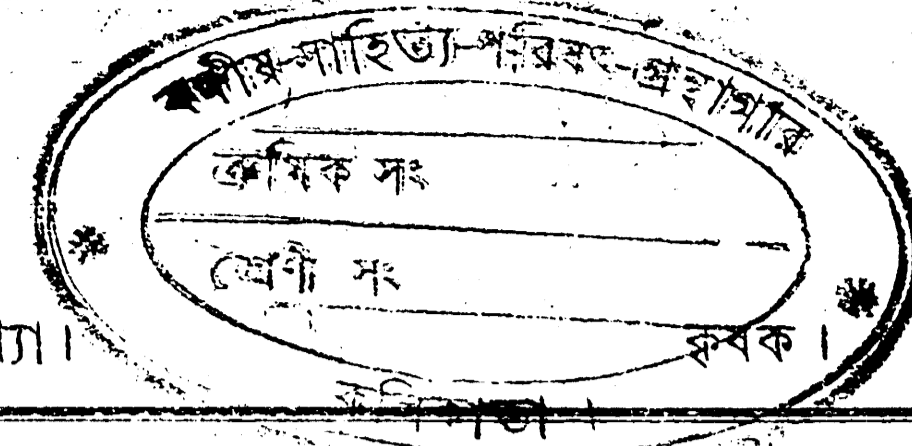 বঙ্গীয়-সাহিত্য-পরিষৎ-গ্রন্থাগার
ক্রমিক সং
শ্রেণী সং
কৃষক ।